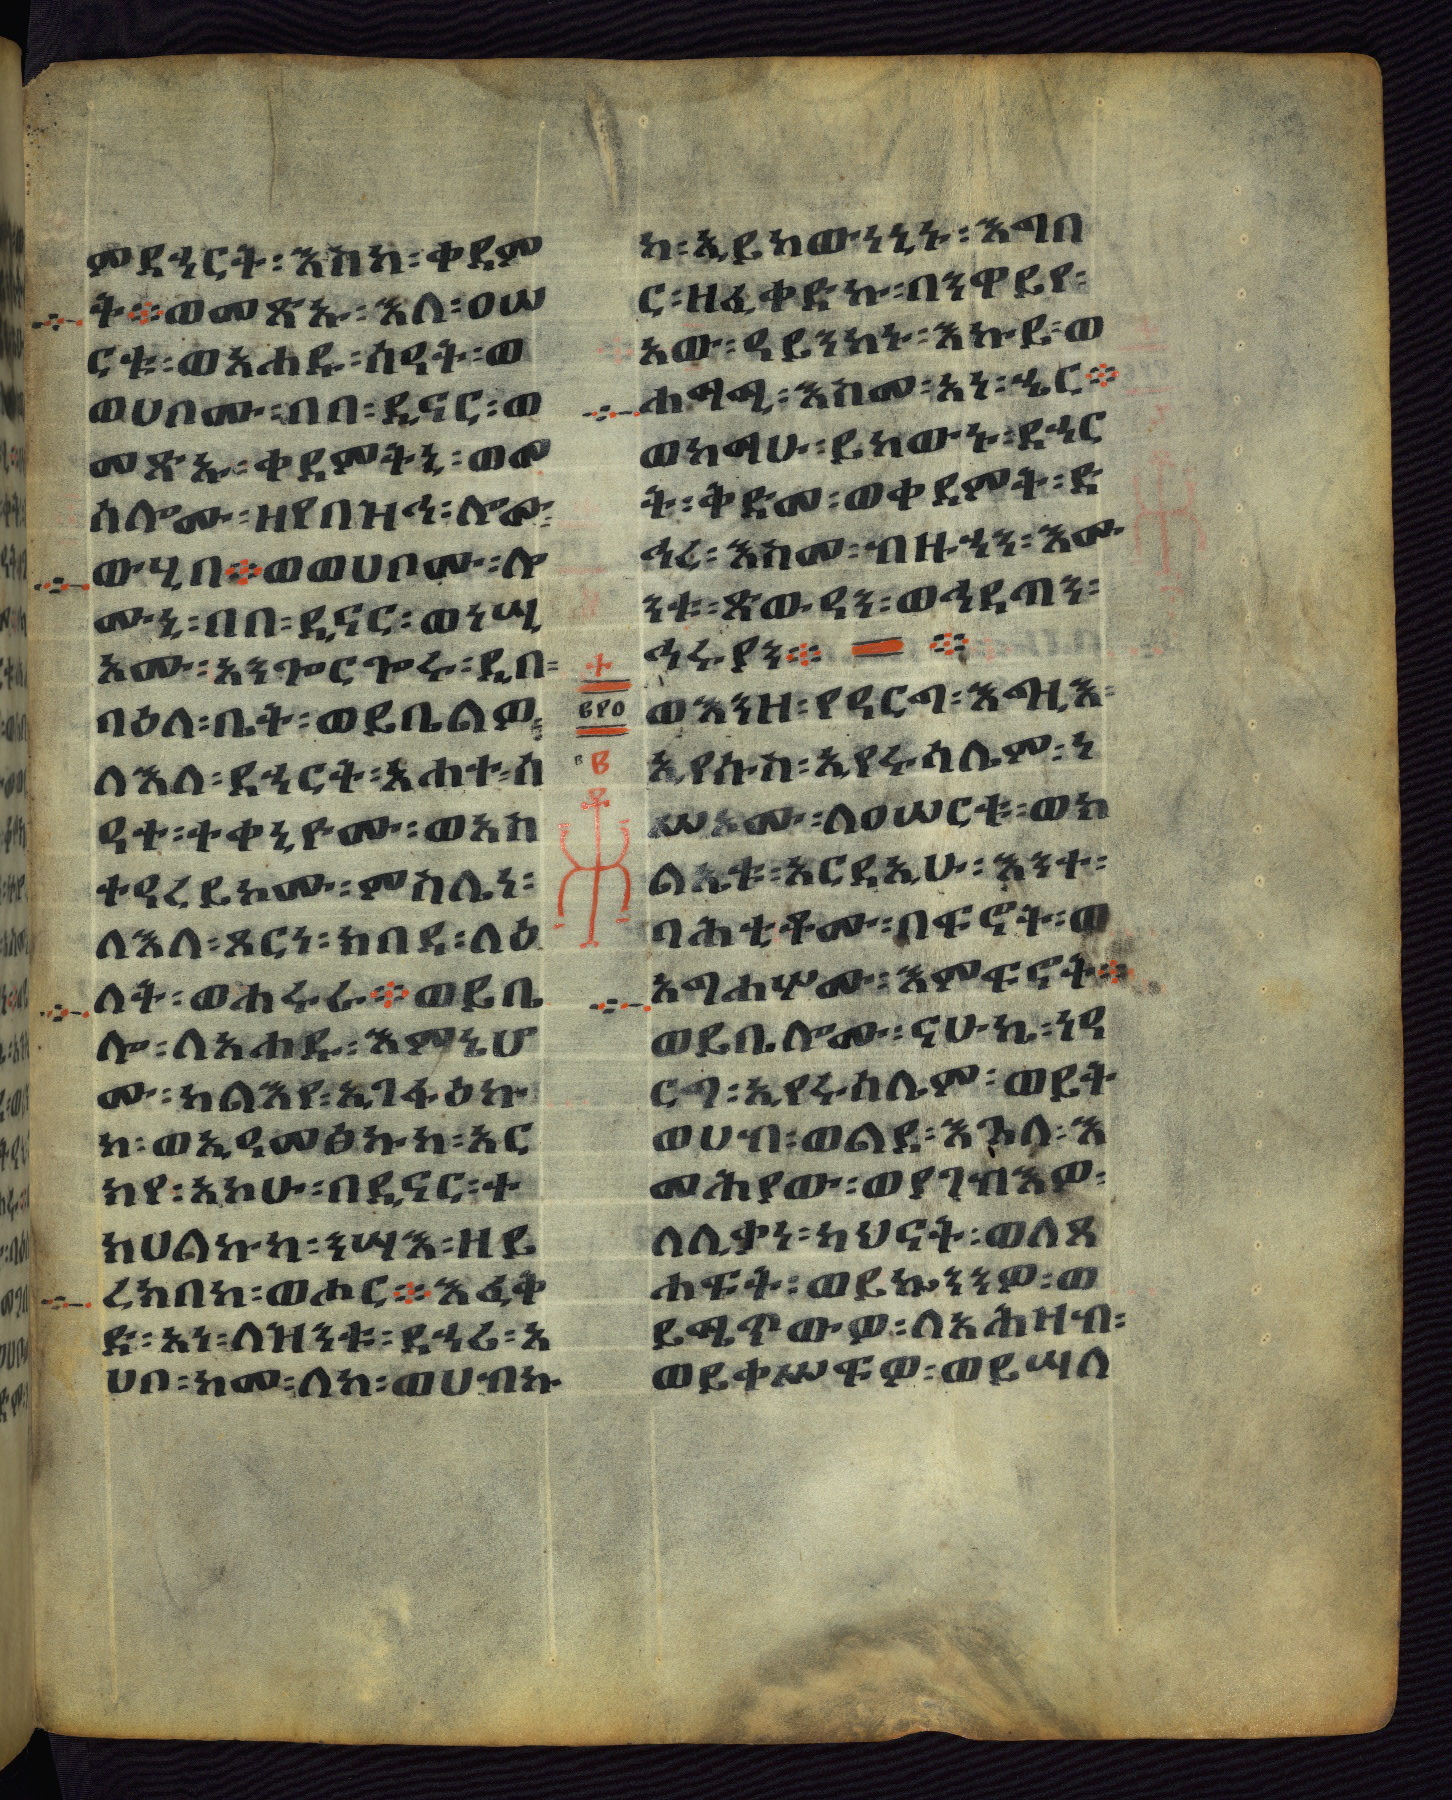 ምደኀርት፡እስከ፡ቀደም
ት፨ወመጽኡ፡እለ፡ዐሠ
ርቱ፡ወአሐዱ፡ሰዓት፡ወ
ወሀቦሙ፡በበ፡ዲናር፡ወ
መጽኡ፡ቀደምትኒ፡ወመ
ሰሎሙ፡ዘየበዝኅ፡ሎሙ፡
ውሂበ፨ወወሀቦሙ፡ሎ
ሙኒ፡በበ፡ዲናር፡ወነሢ
ኦሙ፡አንጐርጐሩ፡ዲበ፡
ባዕለ፡ቤት፡ወይቤልዎ፡
ለእለ፡ደኀርት፡አሐተ፡ሰ
ዓተ፡ተቀንዮሙ፡ወአስ
ተዓረይኮሙ፡ምስሌነ፡
ለእለ፡ጾርነ፡ክበደ፡ዕለ
ለት፡ወሐሩራ፨ወይቤ
ሎ፡ለአሐዱ፡እምኔሆ
ሙ፡ካልእየ፡ኢገፋዕኩ
ከ፡ወኢዓመፅኩከ፡አር
ከየ፡አኮሁ፡በዲናር፡ተ
ከሀልኩከ፡ንሣእ፡ዘይ
ረከበከ፡ወሑር፨እፈቅ
ድ፡አነ፡ለዝንቱ፡ደኃሪ፡አ
ሀቦ፡ከመ፡ለከ፡ወሀብኩ
ከ፡ኢይከውነኒኑ፡እግበ
ር፡ዘፈቀድኩ፡በንዋይየ፡
አው፡ዓይንከኑ፡እኩይ፡ወ
ሐማሚ፡እስመ፡አነ፡ኄር፨
ወከማሁ፡ይከውኑ፡ደኀር
ት፡ቅድመ፡ወቀደምት፡ድ
ኅረ፡እስመ፡ብዙኃን፡እሙ
ንቱ፡ጽውዓን፡ወኅዳጣን፡
ኅሩያን፨
+
፪፻፬
፪
ወእንዘ፡የዓርግ፡እግዚእ፡
ኢየሱስ፡ኢየሩሳሌም፡ነ
ሥኦሙ፡ለዐሠርቱ፡ወክ
ልኤቱ፡አርዳኢሁ፡እንተ፡
ባሕቲቶሙ፡በፍኖት፡ወ
አግሐሦሙ፡እምፍኖት፨
ወይቤሎሙ፡ናሁኬ፡ነዓ
ርግ፡ኢየሩሳሌም፡ወይት
ወሀብ፡ወልደ፡እጓለ፡እ
መሕያው፡ወያገብእዎ፡
ለሊቃነ፡ካህናት፡ወለጸ
ሐፍት፡ወይኴንንዎ፡ወ
ይሜጥውዎ፡ለአሕዛብ፡
ወይቀሥፍዎ፡ወይሣለ